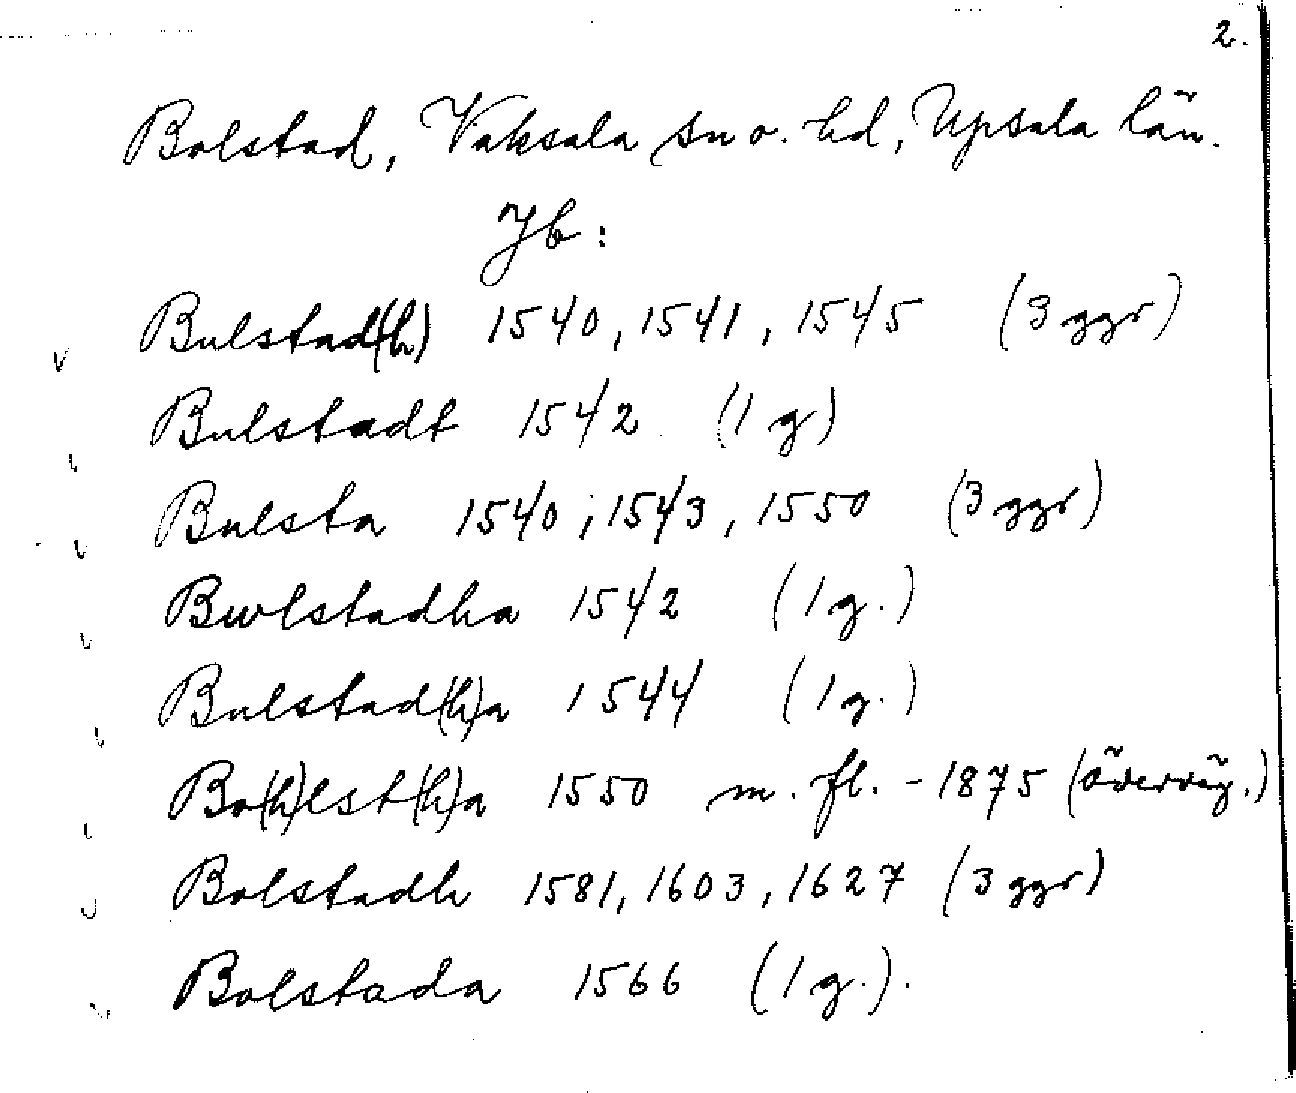 2.
Bolstad, Vaksala sn o. hd, Upsala län.
Jb:
Bulstad(h) 1540, 1541, 1545 (3 ggr)
Bulstadt 1542 (1 g)
Bulsta 1540, 1543, 1550 (3 ggr)
Bwlstadha 1542 (1 g.)
Bulstad(h)a 1544 (1 g.)
Bo(h)lst(h)a 1550 m. fl. - 1875 (överväg.)
Bolstadh 1581, 1603, 1627 (3 ggr)
Bolstada 1566 (1 g.).